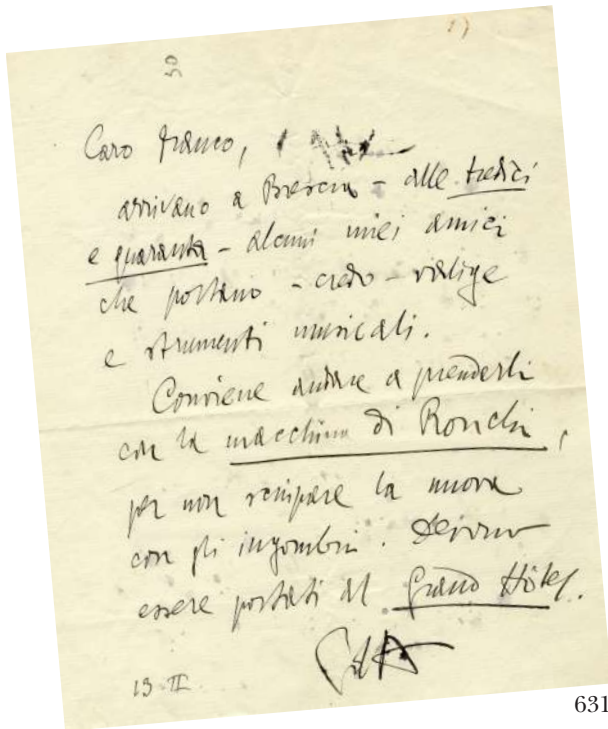 30
Caro Franco,
arrivano a Brescia - alle tredici
e quaranta - alcuni miei amici
che portano - credo - valige
e strumenti musicali.
Conviene andare a prenderli
con la macchina di Ronchi,
per non sciupare la nuova
con gli ingombri. Devono
essere portati al Grand Hôtel.
13 II
631